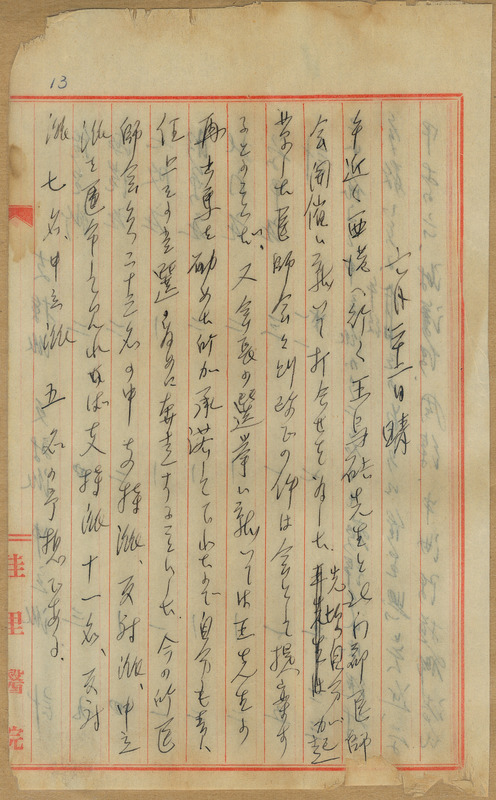 13
六月二十一日 晴
午近く西港へ行く 王烏硈先生と北門郡医師
会開催に就いて打合せを為した. 先づ自分が起
草した医師会 の件は会として提案す
ることのこと. 又会長の選挙に就いては王先生の
再出馬を勧めた所が承諾して下れたので自分も責
任上その当選の為めに奔走することにした. 今の所医
師会員二十三名の中 支持派、反対派、中立
派を運命して見れば支持派十一名、反対
派 七名、中立派 五名の予想である.
佳里醫院